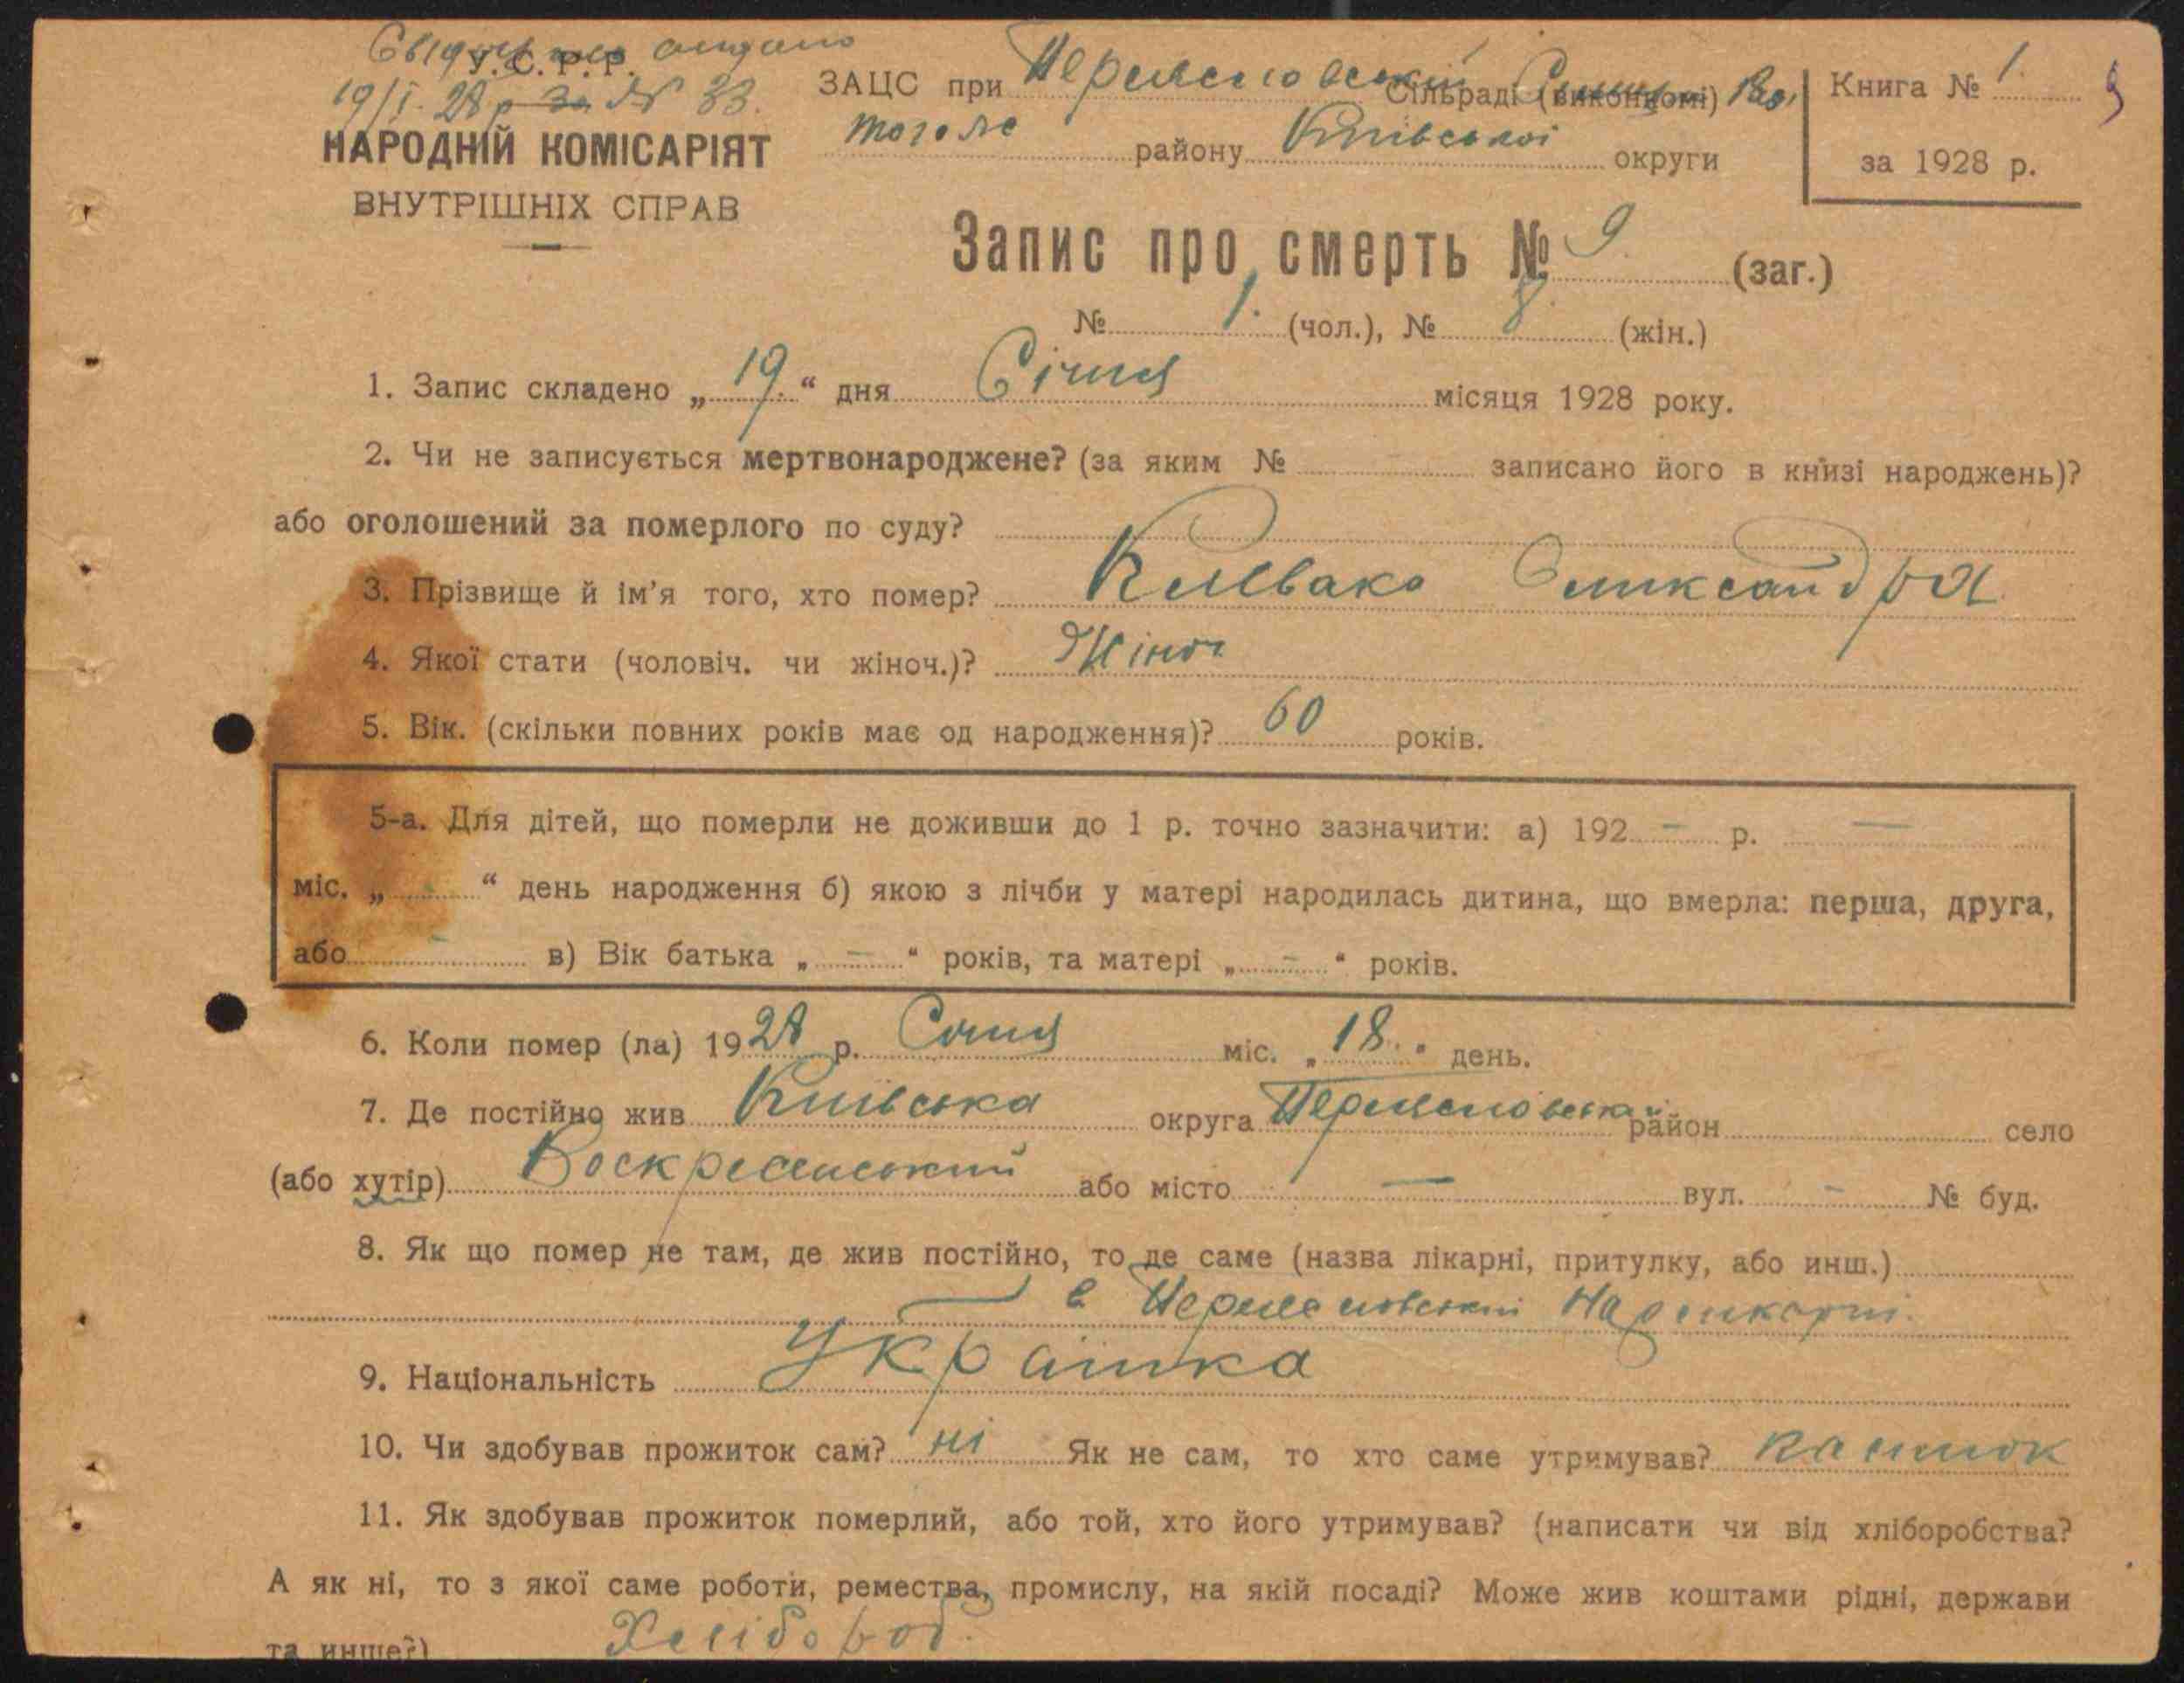 У.С.Р.Р.
19/І 28 р № 33.
НАРОДНІЙ КОМІСАРІЯТ
ВНУТРІШНІХ СПРАВ
ЗАЦС при Сільраді (виконкомі)
того ж району Київської округи
Книга № 1.
за 1928 р.
9
Запис про смерть № 9. (заг.)
№ 1. (чол.), № 8. (жін.)
1. Запис складено „ 19. “ дня Січня місяця 1928 року.
2. Чи не записується мертвонароджене? (за яким № записано його в книзі народжень)?
або оголошений за померлого по суду?
3. Прізвище й ім'я того, хто помер?
4. Якої стати (чоловіч. чи жіноч.)? Жіноч
5. Вік. (скільки повних років має од народження)? 60 років.
5-а. Для дітей, що померли не доживши до 1 р. точно зазначити: а) 192 — р. —
міс. „ “ день народження б) якою з лічби у матері народилась дитина, що вмерла: перша, друга,
або — в) Вік батька „ — “ років, та матері „ — “ років.
6. Коли помер (ла) 1928 р. Січня міс. „ 18. “ день.
7. Де постійно жив Київська округа район село
(або хутір) Воскресенський або місто — вул. — № буд.
8. Як що помер не там, де жив постійно, то де саме (назва лікарні, притулку, або инш.)
в
9. Національність Українка
10. Чи здобував прожиток сам? ні Як не сам, то хто саме утримував?
11. Як здобував прожиток померлий, або той, хто його утримував? (написати чи від хліборобства?
А як ні, то з якої саме роботи, ремества, промислу, на якій посаді? Може жив коштами рідні, держави
та инше?) Хлібороб.